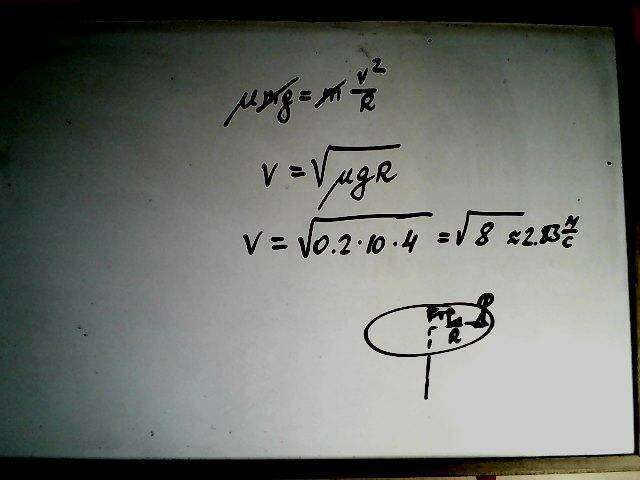 μmg = m v²/R
V = √μgR
V = √0.2·10·4 = √8 ≈ 2.83 м/с
Fтр
R